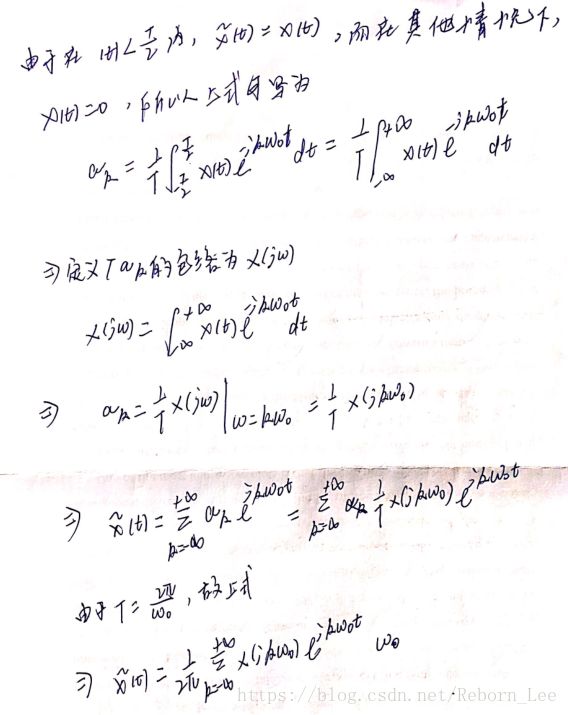 由于在 |t|<T/2 内, x̃(t) = x(t), 而在其他情况下,
x(t)=0, 所以上式可写为
a_k = 1/T ∫_{-T/2}^{T/2} x(t) e^{-jkω₀t} dt = 1/T ∫_{-∞}^{+∞} x(t) e^{-jkω₀t} dt
⇒ 定义 T a_k 的包络为 X(jω)
X(jω) = ∫_{-∞}^{+∞} x(t) e^{-jkω₀t} dt
⇒ a_k = 1/T X(jω) |_{ω=kω₀} = 1/T X(jkω₀)
⇒ x̃(t) = Σ_{k=-∞}^{+∞} a_k e^{jkω₀t} = Σ_{k=-∞}^{+∞} a_k 1/T X(jkω₀) e^{jkω₀t}
由于 T = 2π/ω₀, 故上式
⇒ x̃(t) = 1/2π Σ_{k=-∞}^{+∞} X(jkω₀) e^{jkω₀t} ω₀
https://blog.csdn.net/Reborn_Lee